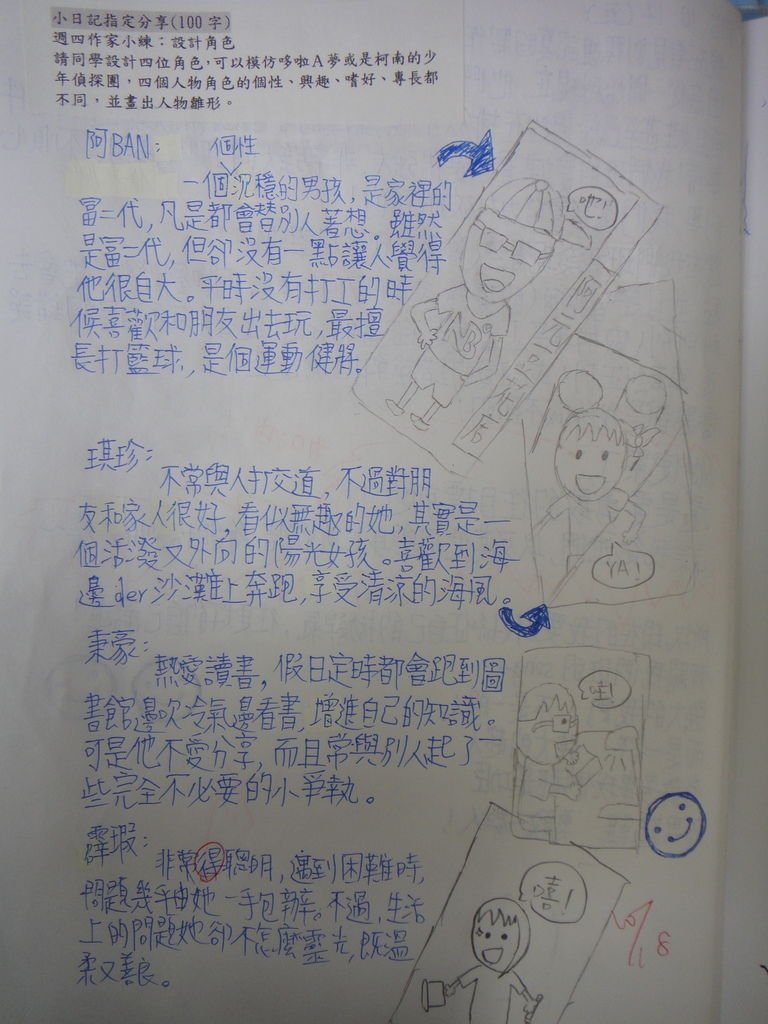 小日記指定分享(100字)
週四作家小練：設計角色
請同學設計四位角色，可以模仿哆啦A夢或是柯南的少
年偵探團，四個人物角色的個性、興趣、嗜好、專長都
不同，並畫出人物雛形。
阿BAN： 個性
一個沉穩的男孩，是家裡的
富二代，凡是都會替別人著想。雖然
是富二代，但卻沒有一點讓人覺得
他很自大。平時沒有打工的時
候喜歡和朋友出去玩，最擅
長打籃球，是個運動健將。
呃！
NB
琪珍：
不常與人打交道，不過對朋
友和家人很好，看似無趣的她，其實是一
個活潑又外向的陽光女孩。喜歡到海
邊der沙灘上奔跑，享受清涼的海風。
YA！
秉豪：
熱愛讀書，假日定時都會跑到圖
書館邊吹冷氣邊看書，增進自己的知識。
可是他不愛分享，而且常與別人起了一
些完全不必要的小爭執。
哇！
霹瑕：
非常得聰明，遇到困難時，
問題幾乎由她一手包辦。不過，生活
上的問題她卻不怎麼靈光，既溫
柔又善良。
嘻！
10/8